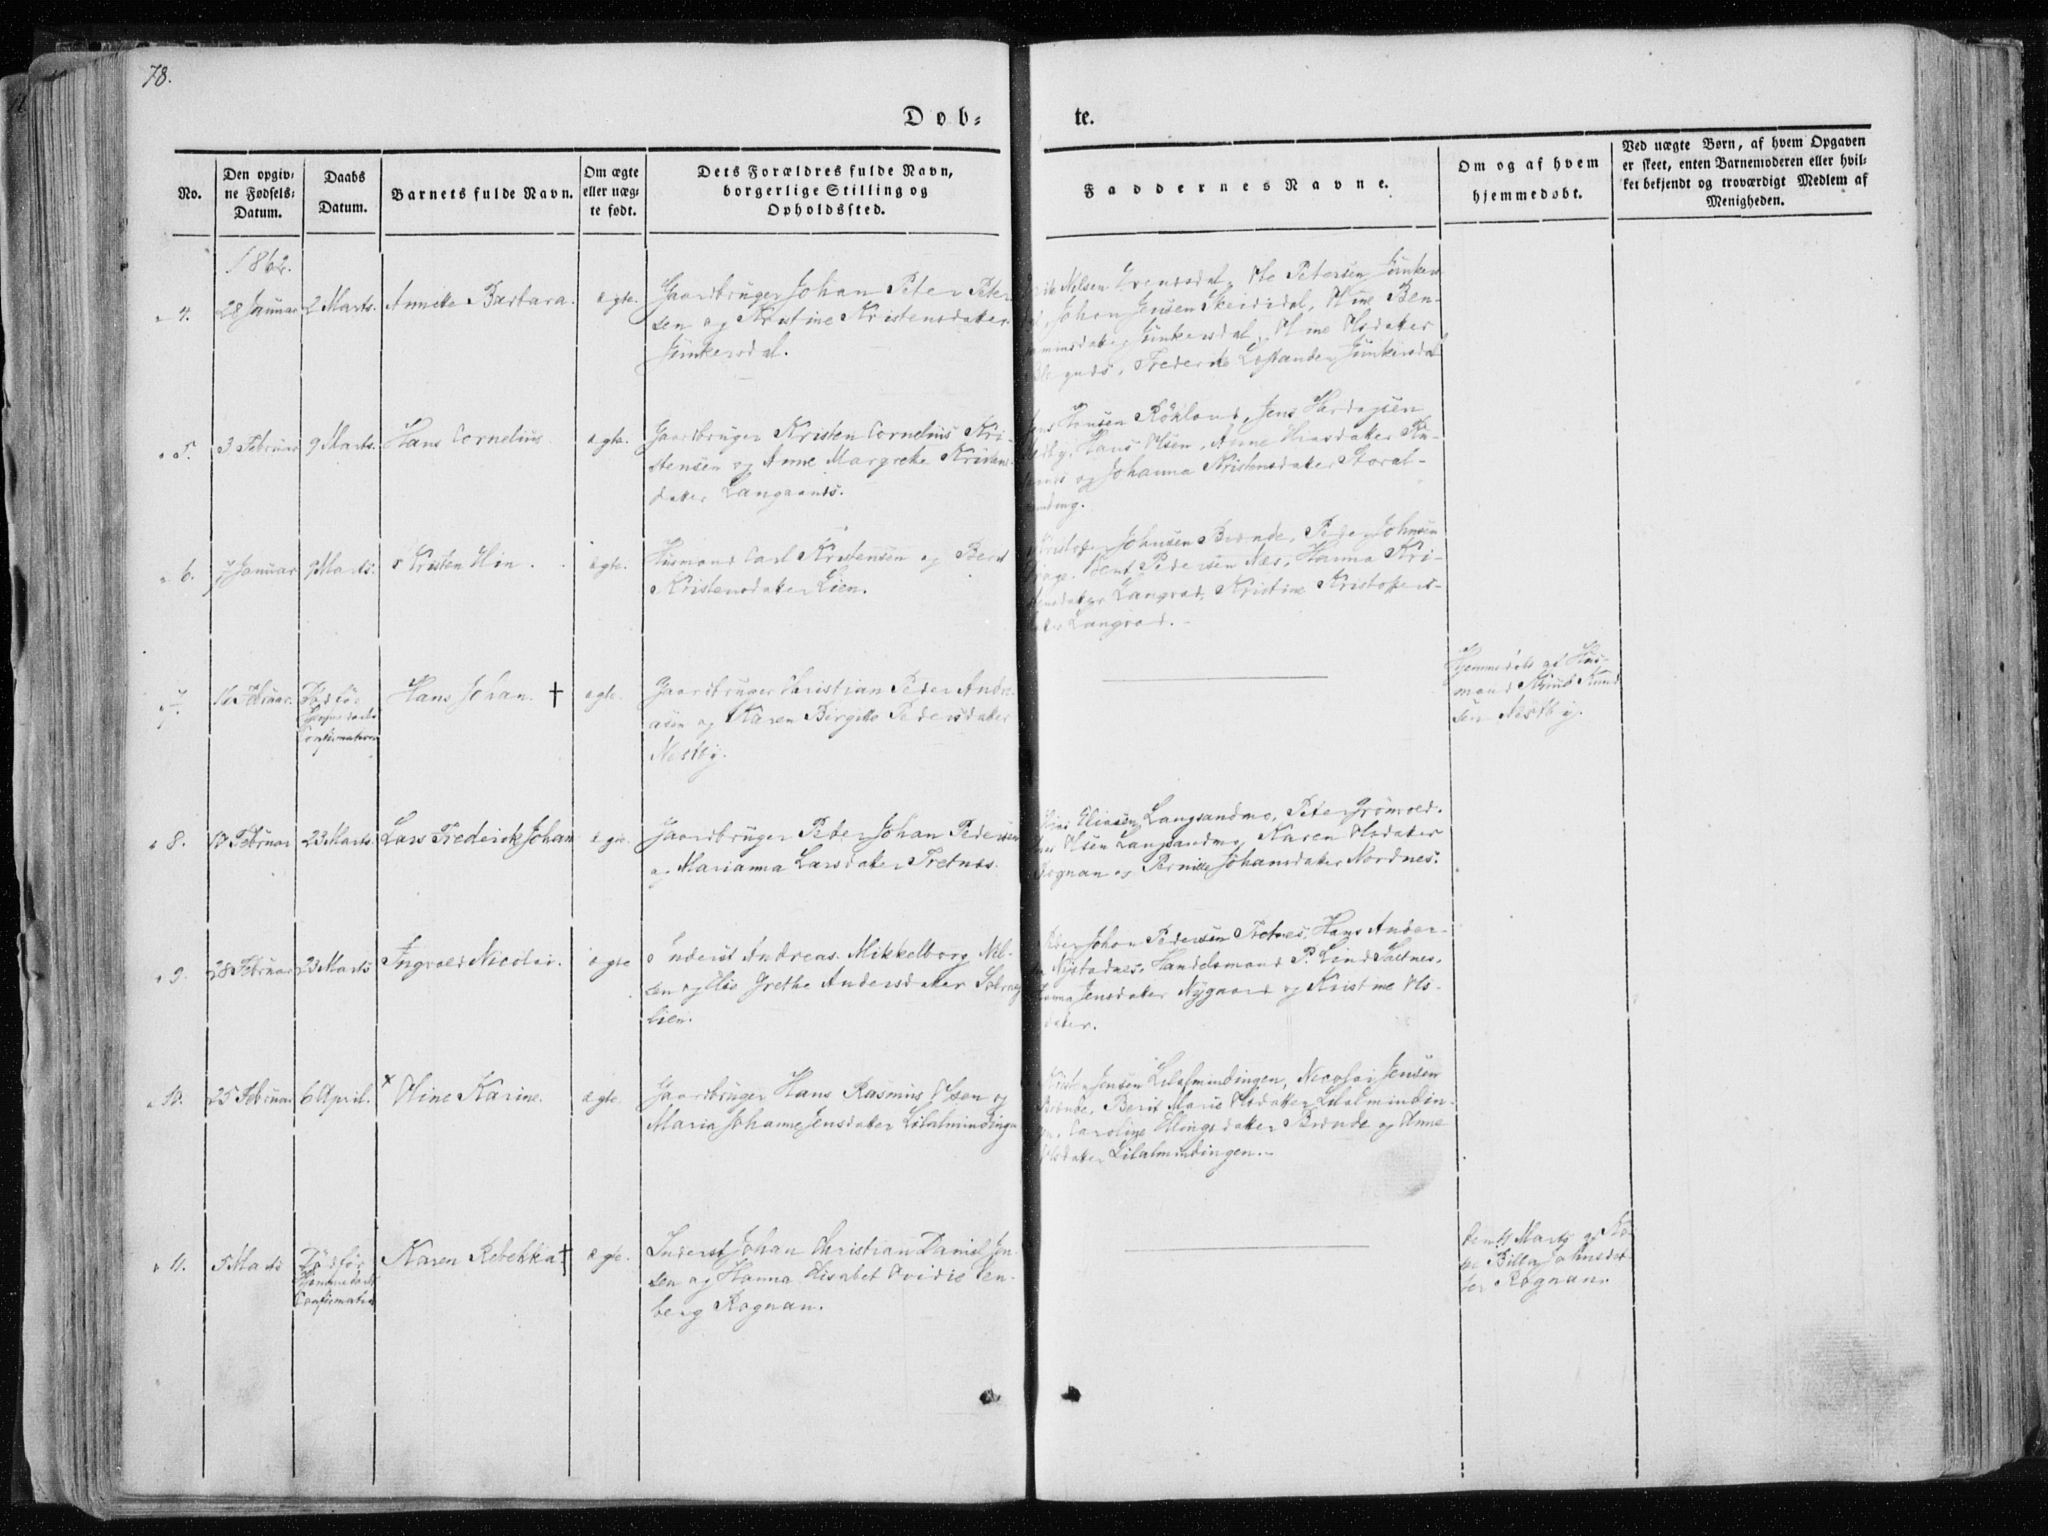 78.
Døb-
te.
No.
Den opgiv-
ne Fødsels-
Datum.
Daabs
Datum.
Barnets fulde Navn.
Om ægte
eller uæg-
te født.
Dets Forældres fulde Navn,
borgerlige Stilling og
Opholdssted.
Faddernes Navne.
Om og af hvem
hjemmedøbt.
Ved uægte Børn, af hvem Opgaven
er skeet, enten Barnemoderen eller hvil-
ket bekjendt og troværdigt Medlem af
Menigheden.
1862.
4. 28 Januar 2 Marts. Annette Barbara. ægte.
Gaardbruger Johan Peter Peter-
sen og Kristine Kristensdatter
Junkersdal.
Nilsen Evensdal, Ole Petersen Junkers-
Johan Jensen Skeidsdal, Oline Ben-
Junkersdal, Oline Olsdatter
Junkersdal
5. 3 Februar 9 Marts. Hans Cornelius. ægte.
Gaardbruger Kristen Cornelius Kri-
stensen og Anne Margrethe Kristens-
datter Langaands.
Hansen Røkland, Jens Hardagsen
Hans Olsen, Anne Hansdatter
og Johanna Kristensdatter Storal-
6. 7 Januar 9 Marts. Kristen Hin. ægte.
Husmand Carl Kristensen og Berit
Kristensdatter Lien.
Johnsen Brænde, Peder Johnsen
Bent Pedersen Næs, Hanna Kri-
Langsad, Kristine Kristoffers-
Langsad.
7. 16 Februar. Hans Johan. † ægte.
Confirmationen
Gaardbruger Christian Peder Andre-
asen og Karen Birgitte Pedersdatter
Nestby.
Hjemmedøbt af Hus-
mand Knud Knud-
sen Nestby.
8. 17 Februar 23 Marts. Lars Frederick Johan ægte.
Gaardbruger Peder Johan Pedersen
og Marianna Larsdatter Tretnæs.
Eliasen Langsandmo, Peter
Olsen Langsandmo, Karen Olsdatter
Rognan og Pernille Johansdatter Nordnes.
9. 28 Februar 23 Marts Ingvald Nicolai. ægte
Inderst Andreas Mikkelborg Nil-
sen og Else Grethe Andersdatter
lien.
Johan Pedersen Tretnes, Hans Ander-
Nystadnes, Handelsmand P. Lind Saltnes,
Jensdatter Nygaard og Kristine Ols-
datter.
10. 25 Februar 6 April. × Oline Karine. ægte.
Gaardbruger Hans Rasmus Olsen og
Maria Johanne Jensdatter Lilalmindingen
Jensen Lilalmindingen, Nicolai Jensen
Brænde, Berit Marie Olsdatter Lilalmindin-
Caroline Ellingsdatter Brænde og Anne
Olsdatter Lilalmindingen.
11. 5 Marts Karen Rebekka † ægte.
Confirmation
Inderst Johan Christian Daniel Jen-
sen og Hanna Elisabet Ovidie Sten-
berg Rognan.
Marts af
Johnsdat-
ter Rognan.